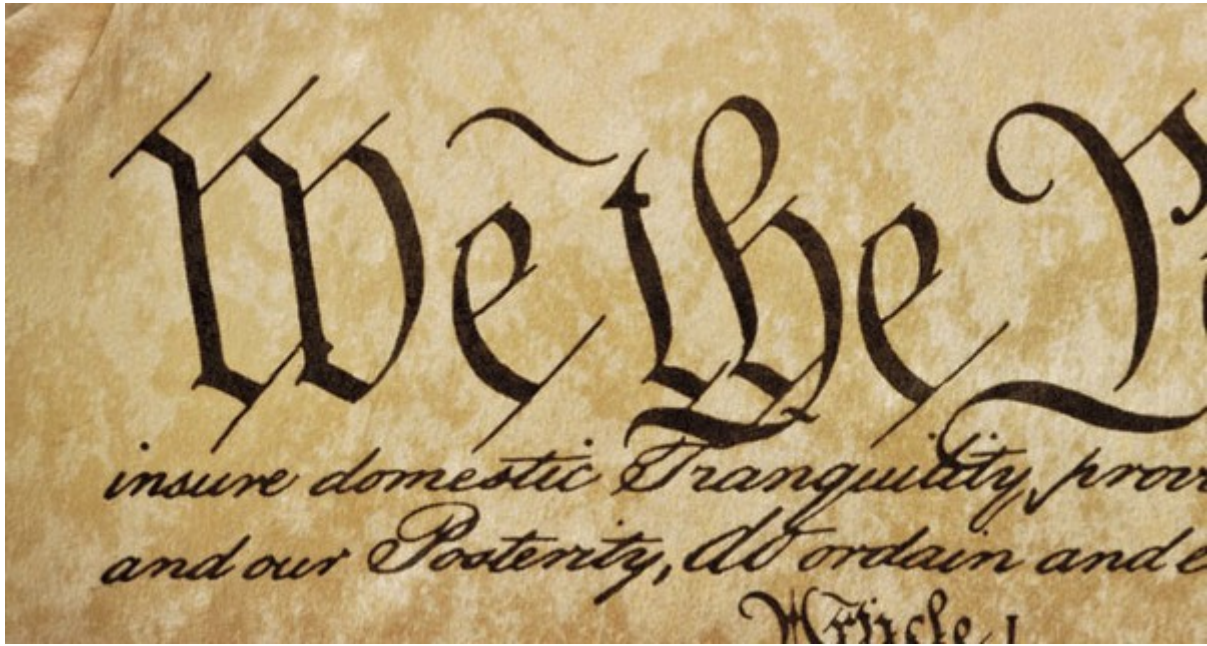 We the P
insure domestic Tranquility, prov
and our Posterity, do ordain and e
Article I